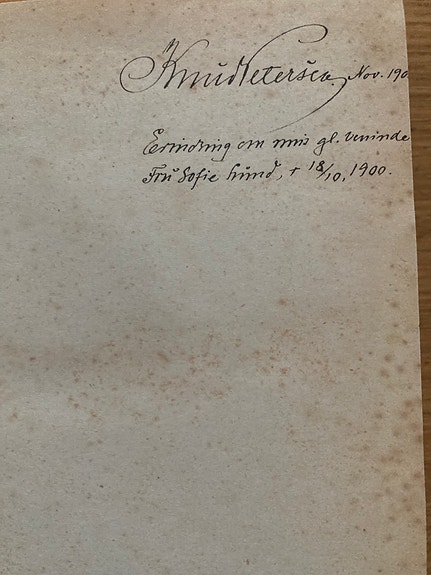 Knud Petersen. Nov. 190
Erindring om min gl. veninde
Frú Sofie Lund, + 18/10, 1900.